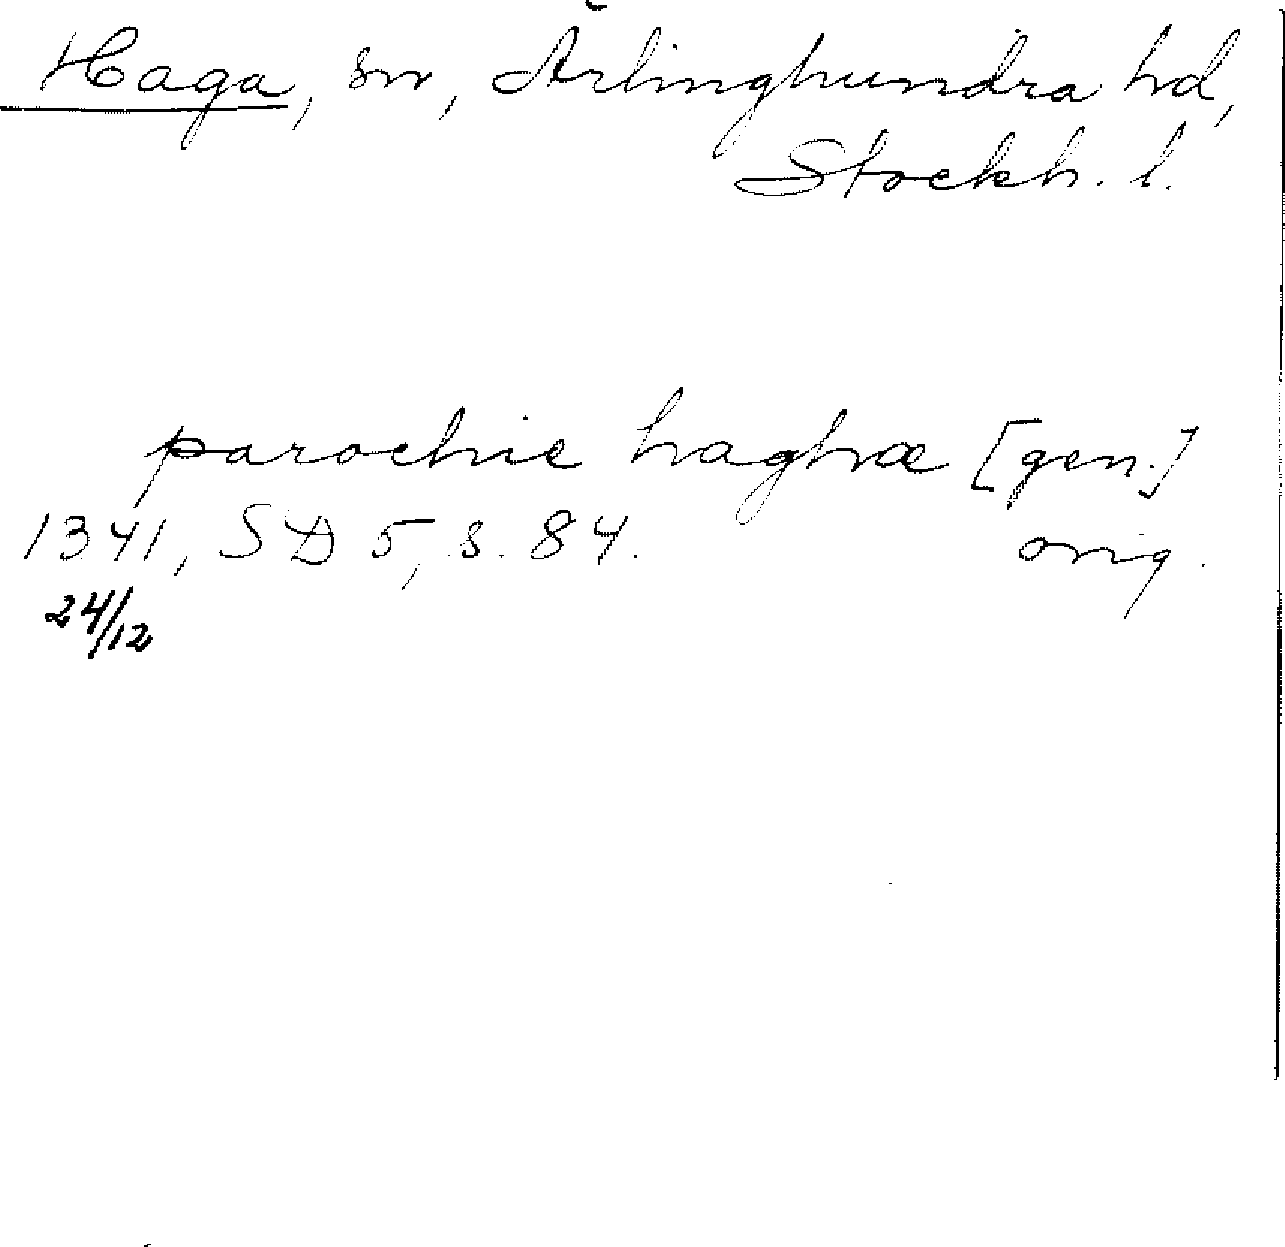 Haga, sn, Ärlinghundra hd,
Stockh. l.
parochie haghæ [gen.]
1341, SD 5, s. 84. orig.
24/12